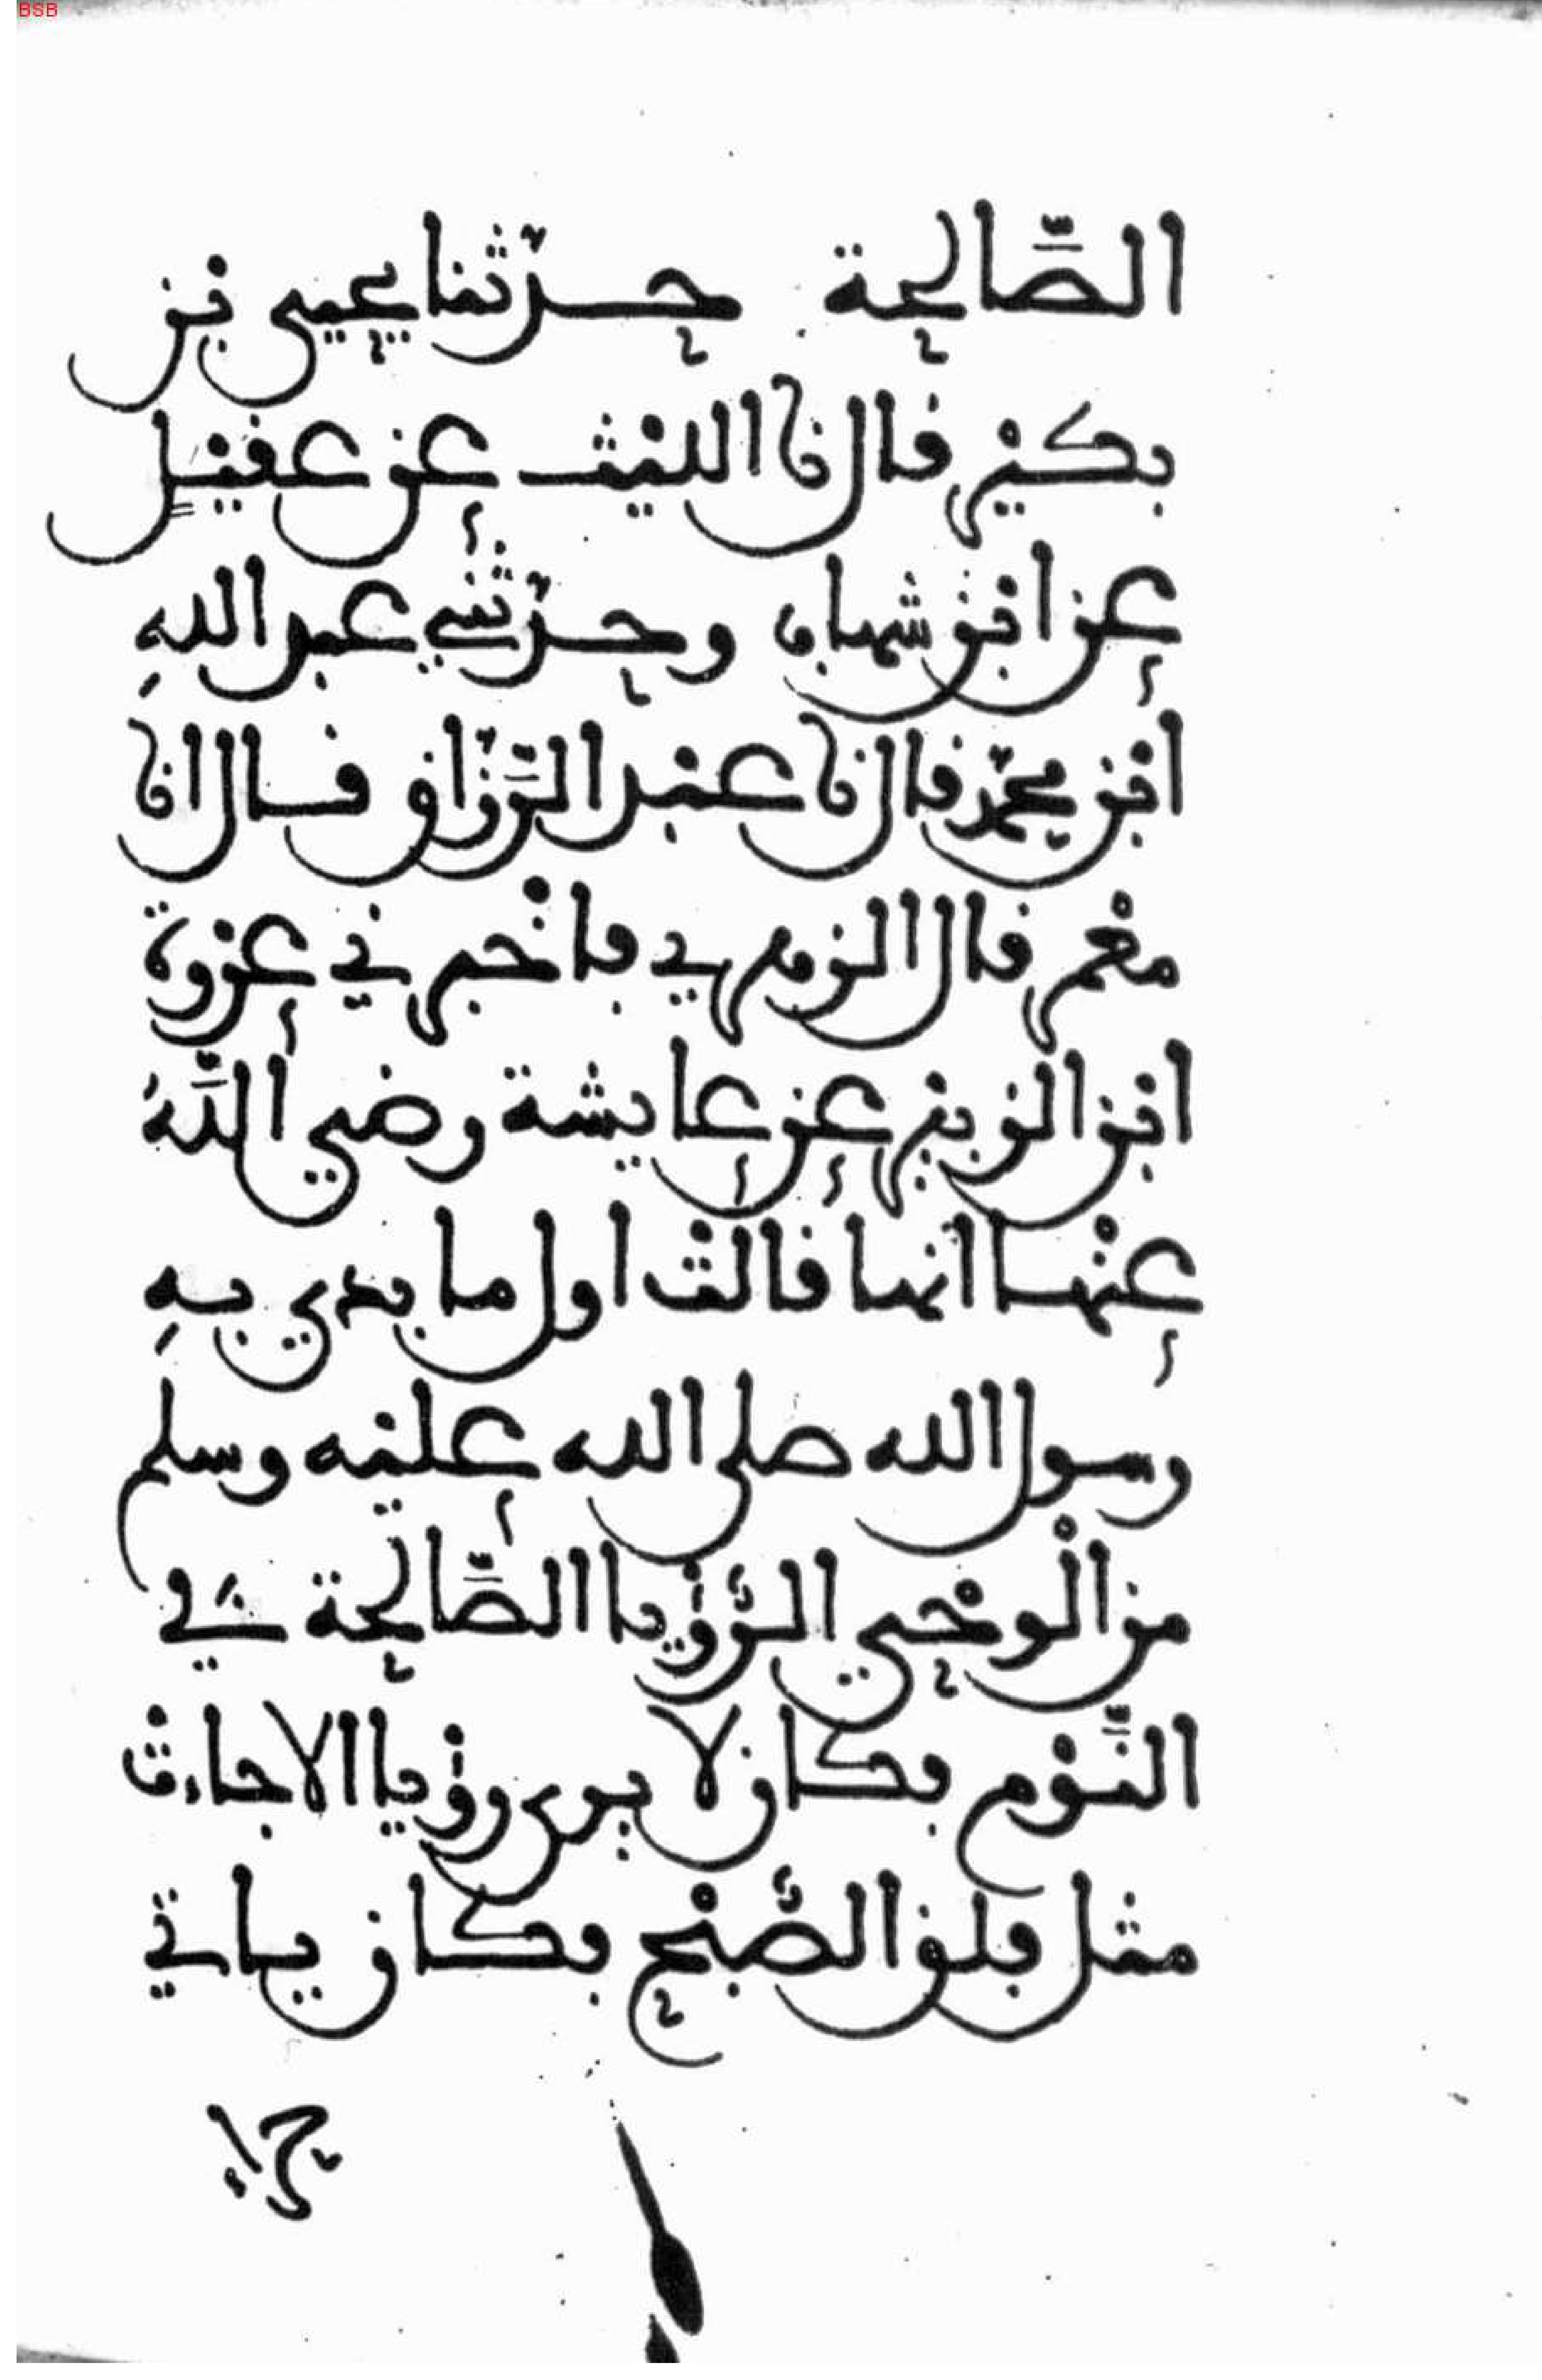 BSB
الصَّالحة حدّثنا يحيى بن
بكير قال نا الليث عن عقيل
عن ابن شهاب وحدّثني عبد اللهِ
ابن محمّد قال نا عبد الرَّزّاق قال انا
معْمر قال الزهري فاخْبرني عروة
ابن الزبير عن عايشة رضي اللَّهُ
عنْها انها قالتْ اول ما بدئ بهِ
رسول الله صلى الله عليْه وسلم
من الْوحْي الرُّؤْيا الصَّالحة في
النَّوْم فكان لا يرى رؤْيا الا جاءتْ
مثل فلق الصُّبْح فكان ياتي
حراء